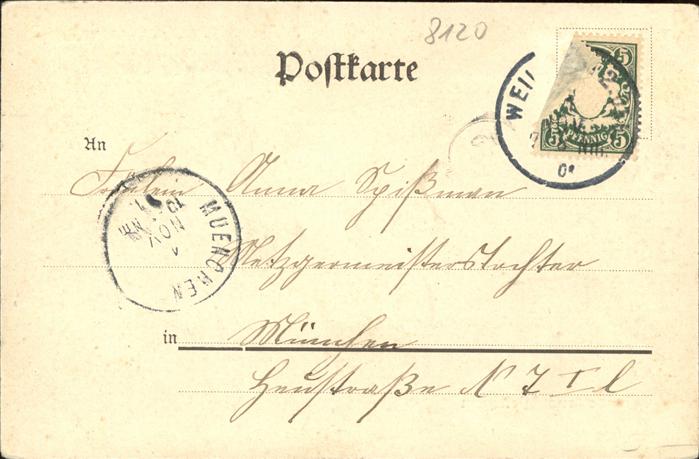 8120
Postkarte
5
PFENNIG
5 5
WEIL
An
Fräulein Anna Spißman
MUENCHEN
NOV
Metzgermeisterstochter
in München
Heustraße N 7 I l